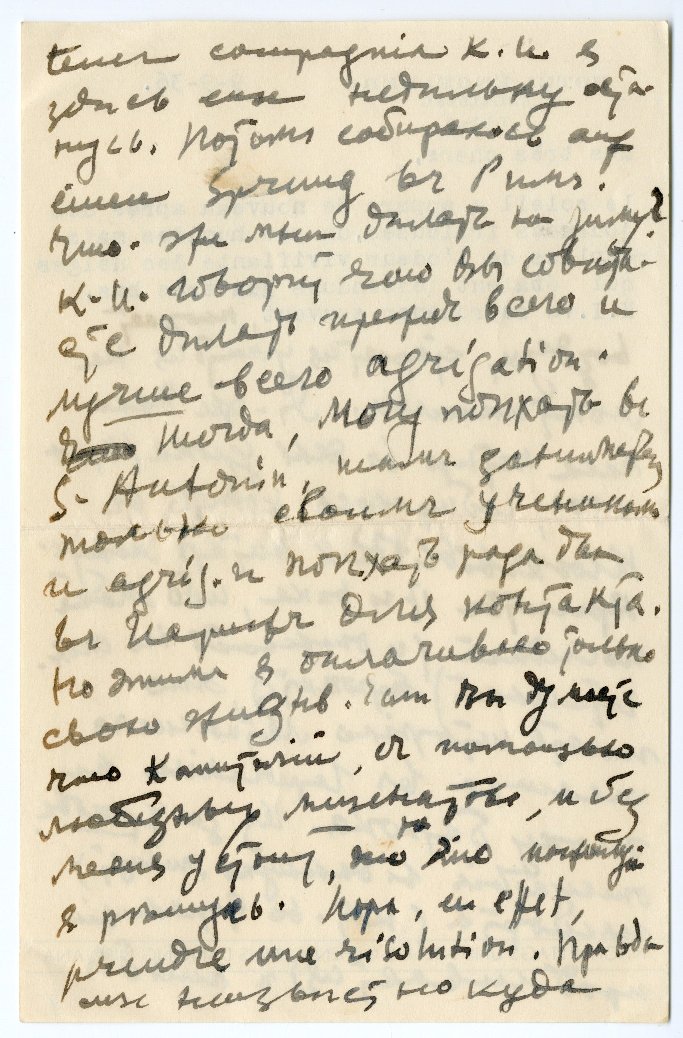 compagnia К. И. я
здѣсь еще недѣльку оста-
нусь. Потомъ собираюсь auf
einen Sprung въ Римъ.
Что-же мнѣ дѣлать на зиму?
К. И. говоритъ что онъ совѣту-
етъ дѣлать прежде всего и
лучше всего agrégation.
Тогда, могу поѣхать въ
S. Antonin, тамъ заниматься
только своимъ ученикомъ
и agrég. и поѣхать раза два
въ Парижъ для контакта.
Но этимъ я оплачиваю только
свою жизнь. Если вы думаете
что Капиталъ, съ помощью
любезныхъ меценатовъ, и без
меня устоитъ, то на это
я рѣшусь. Пора, en effet,
prendre une résolution. Правда
неизвѣстно куда